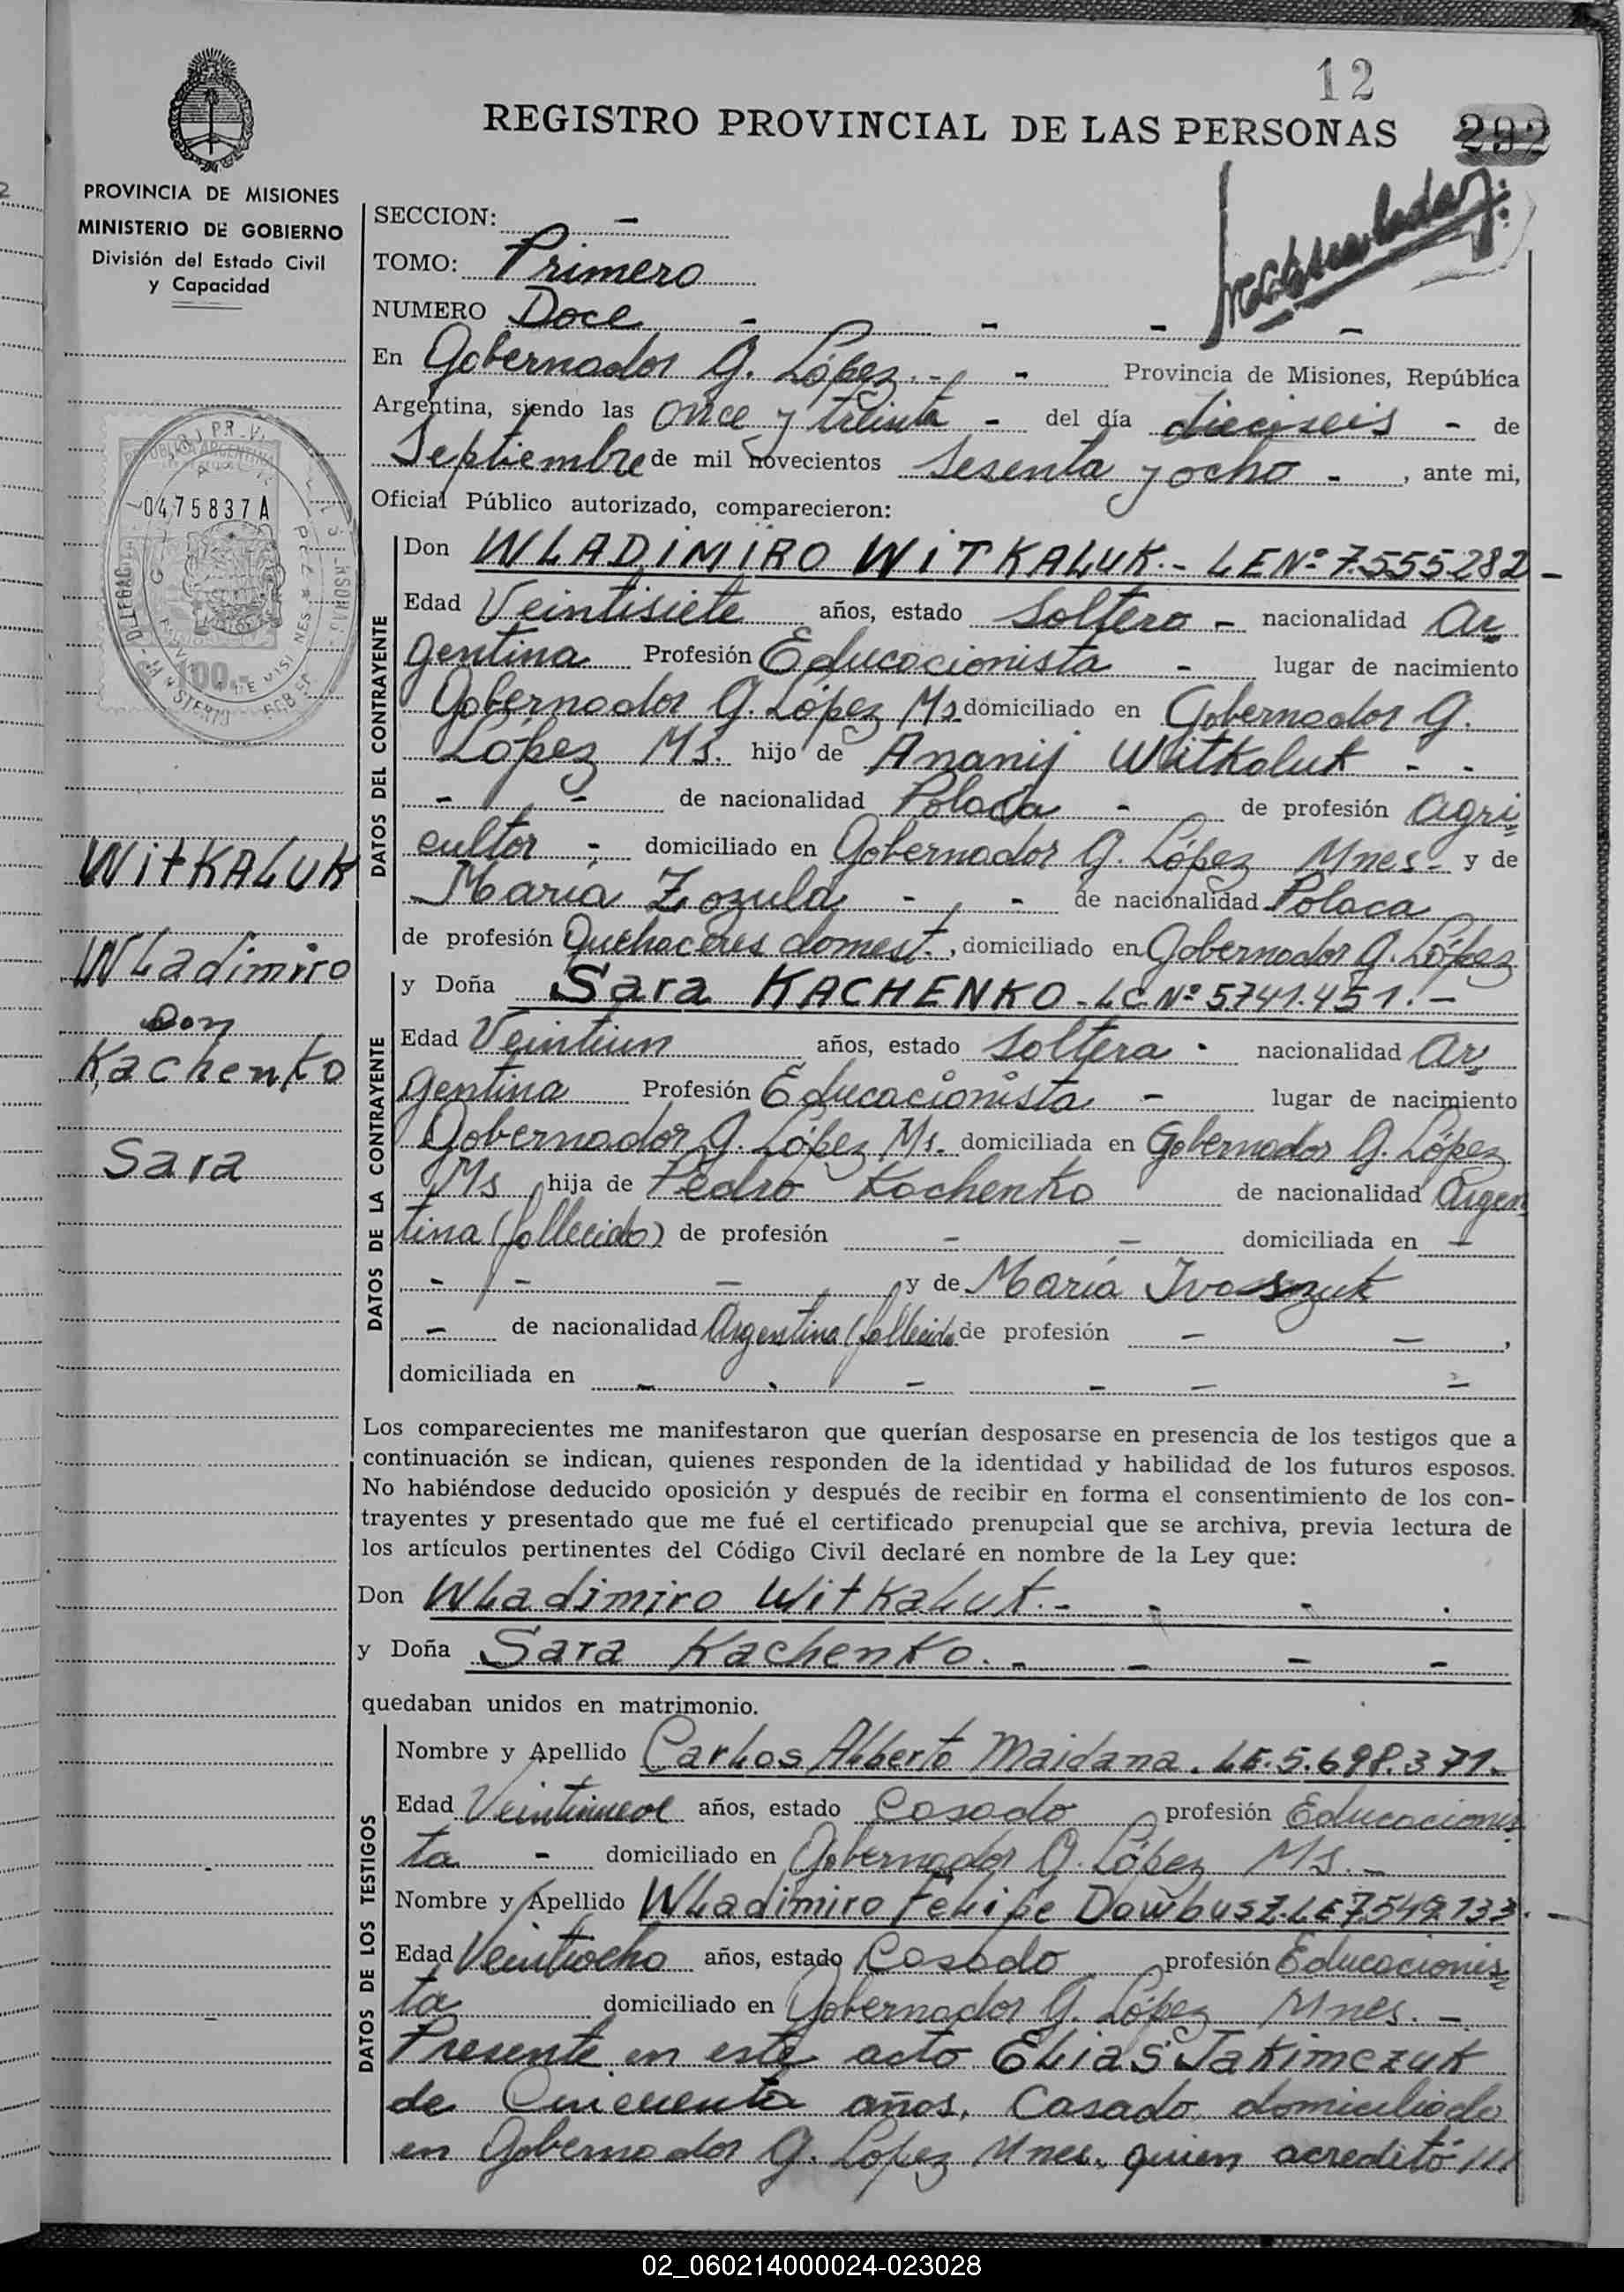 12
REGISTRO PROVINCIAL DE LAS PERSONAS
292
PROVINCIA DE MISIONES
MINISTERIO DE GOBIERNO
División del Estado Civil
y Capacidad
SECCION: -
TOMO: Primero
NUMERO Doce - - - -
En Gobernador G. López.- - Provincia de Misiones, República
Argentina, siendo las once y treinta - del día dieciseis - de
Septiembre de mil novecientos sesenta y ocho - , ante mi,
Oficial Público autorizado, comparecieron:
0475837A
100.-
WITKALUK
Wladimiro
con
Kachenko
Sara
DATOS DEL CONTRAYENTE
Don WLADIMIRO WITKALUK.- LE Nº 7.555.282 -
Edad Veintisiete años, estado Soltero - nacionalidad Ar
gentina Profesión Educacionista - lugar de nacimiento
Gobernador G. López Ms domiciliado en Gobernador G.
López Ms. hijo de Ananij Witkaluk - -
- - de nacionalidad Polaca - de profesión agri
cultor - domiciliado en Gobernador G. López Mnes - y de
María Zozula - - de nacionalidad Polaca
de profesión Quehaceres domest. , domiciliado en Gobernador G. López
DATOS DE LA CONTRAYENTE
y Doña Sara KACHENKO - LC Nº 5.741.451. -
Edad Veintiun años, estado Soltera - nacionalidad Ar
gentina Profesión Educacionista - lugar de nacimiento
Gobernador G. López Ms. domiciliada en Gobernador G. López
Ms hija de Pedro Kachenko de nacionalidad Argen
tina (fallecido) de profesión - - domiciliada en -
- - - y de María Ivaszuk
- de nacionalidad Argentina (fallecida de profesión - - ,
domiciliada en - - - - - -
Los comparecientes me manifestaron que querían desposarse en presencia de los testigos que a
continuación se indican, quienes responden de la identidad y habilidad de los futuros esposos.
No habiéndose deducido oposición y después de recibir en forma el consentimiento de los con-
trayentes y presentado que me fué el certificado prenupcial que se archiva, previa lectura de
los artículos pertinentes del Código Civil declaré en nombre de la Ley que:
Don Wladimiro Witkaluk. - - - .
y Doña Sara Kachenko. - - - -
quedaban unidos en matrimonio.
DATOS DE LOS TESTIGOS
Nombre y Apellido Carlos Alberto Maidana. LE. 5.698.371.
Edad Veintinueve años, estado Casado profesión Educacionis
ta - domiciliado en Gobernador G. López Ms. -
Nombre y Apellido Wladimiro Felipe Dowbusz. LE 7.549.133. -
Edad Veintiocho años, estado Casado profesión Educacionis
ta domiciliado en Gobernador G. López Mnes. -
Presente en este acto Elias Jakimczuk
de Cincuenta años, Casado, domiciliado
en Gobernador G. López Mnes. quien acreditó ///
02_060214000024-023028